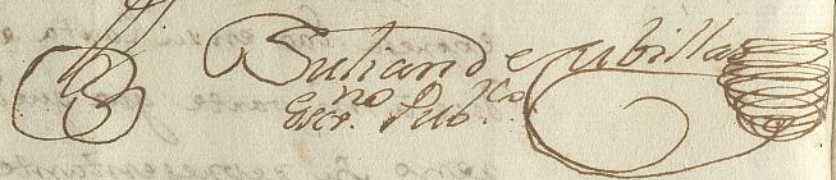 Julian de Cubillas
Escr.no Pub.co